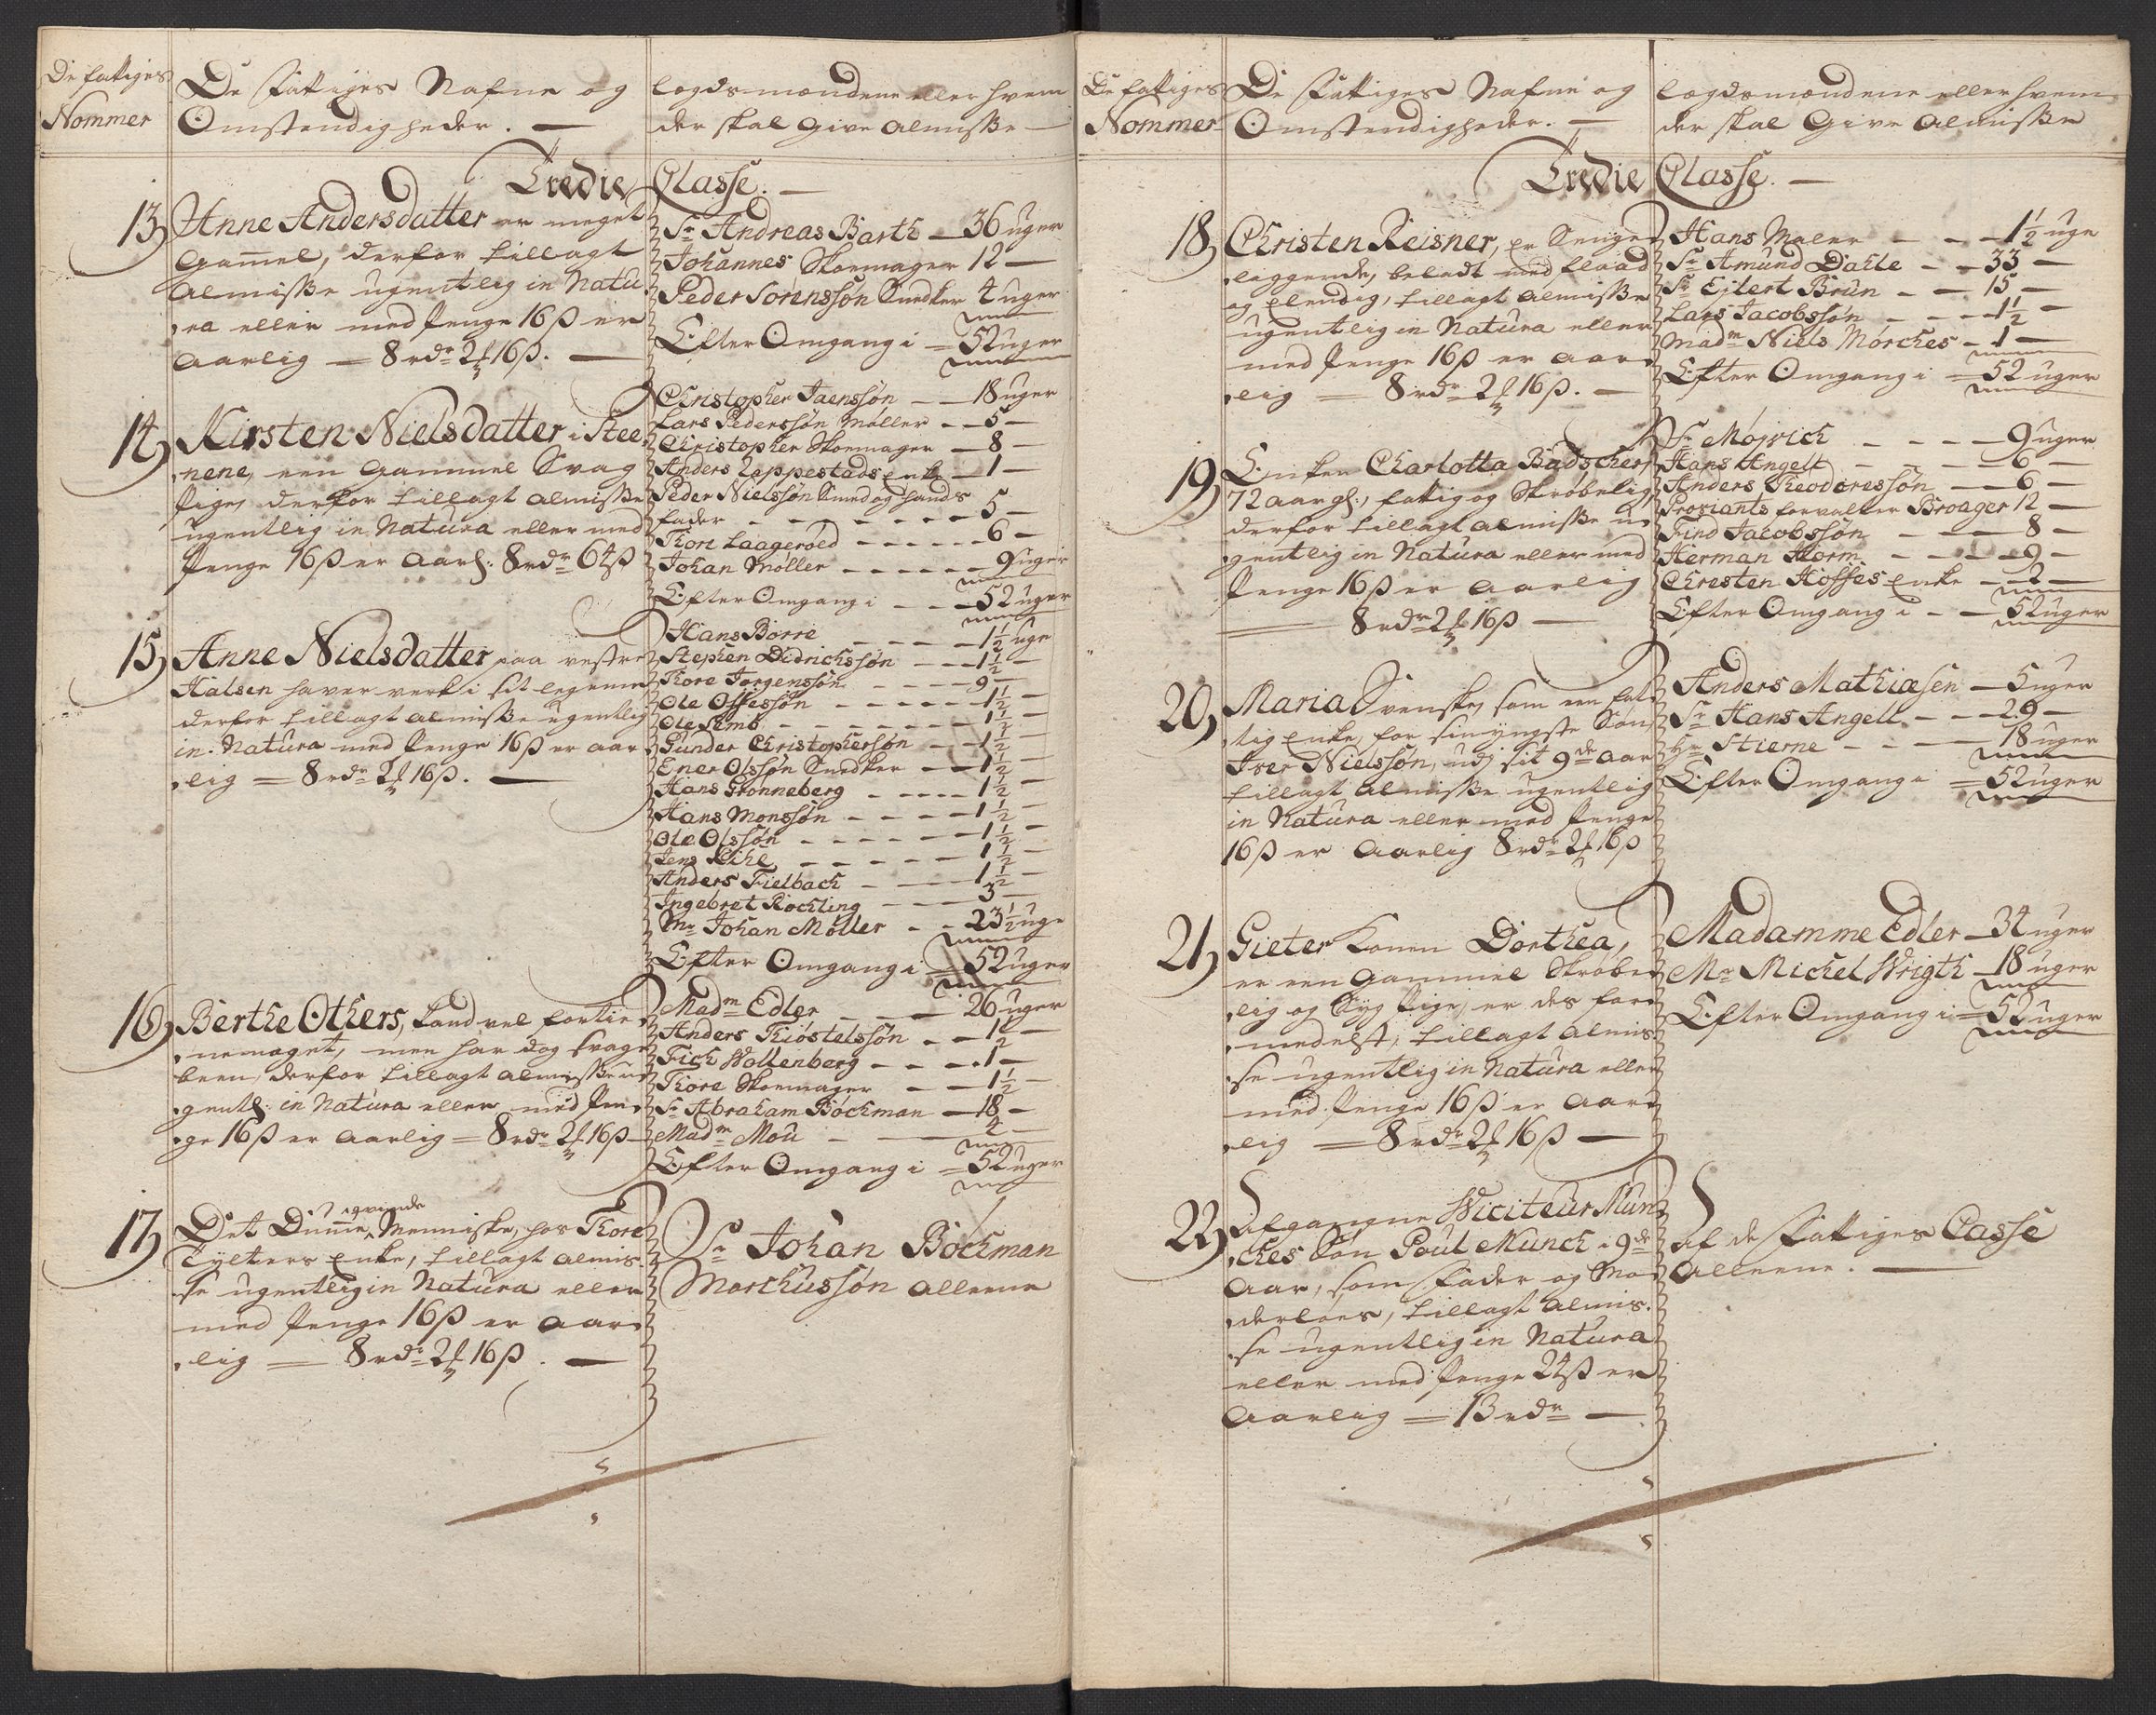 De fattiges
Nommer
De Fattiges Nafne og
Omstendigheder. —
Lægdsmændene eller hvem
der skal give Almisse —
Tredie Classe. —
13, Anne Andersdatter er meget
Gammel, derfor tillagt
Almisse ugentlig in Natu-
ra eller med Penge 16 ß er
Aarlig — 8 rdr 2 ₻ 16 ß. —
Sr Andreas Barth — 36 uger
Johannes Skoemager 12 —
Peder Sörenssøn Snedker 4 uger
Efter Omgang i = 52 uger
14, Kirsten Nielsdatter i Stee-
nene, een Gammel Svag
Pige, derfor tillagt Almisse
ugentlig in Natura eller med
Penge 16 ß er Aarl: 8 rdr 64 ß
Christopher Jaenssøn — 18 uger
Lars Pederssøn Møller — 5 —
Christopher Skoemager — 8 —
Anders Lappestads Enke — 1 —
Peder Nielssøn Smed og hands
fader — 5 —
Thore Laagerøed — 6 —
Johan Møller — 9 uger
Efter Omgang i — 52 uger
15, Anne Nielsdatter paa vestre
Halsen haver verk i sit legeme
derfor tillagt Almisse ugentlig
in Natura med Penge 16 ß er Aar-
lig = 8 rdr 2 ₻ 16 ß. —
Hans Borre — 1½ uge
Stephen Didrichssøn — 1½ —
Thore Jørgenssøn — 9 —
Ole Offessøn — 1½ —
Ole Semb — 1½ —
Gunder Christophersøn — 1½ —
Ener Olssøn Snedker — 1½ —
Hans Grønneberg — 1½ —
Hans Monssøn — 1½ —
Ole Olssøn — 1½ —
Jens Kihl — 1½ —
Anders Fielback — 1½ —
Ingebret Rochling — 3 —
Mr Johan Møller — 23½ uge
Efter Omgang i = 52 uger
16, Berthe Others, kand vel fortie-
ne noget, men har dog svage
been, derfor tillagt Almisse u-
gentl: in Natura eller med Pen-
ge 16 ß er Aarlig = 8 rdr 2 ₻ 16 ß —
Madm Edler — 26 uger
Anders Kiøstelssøn — 1½ —
Fich Wollenberg — 1 —
Thore Skoemager — 1½ —
Sr Abraham Bøckman — 18 —
Madm Mou — 4 —
Efter Omgang i = 52 uger
17, Det Dumme qvinde Menniske, hos Thore
Tylters Enke, tillagt Almis-
se ugentlig in Natura eller
med Penge 16 ß er Aar-
lig = 8 rdr 2 ₻ 16 ß. —
Sr Johan Bøckman
Morthussøn alleene
De fattiges
Nommer
De Fattiges Nafne og
Omstendigheder. —
Lægdsmændene eller hvem
der skal Give Almisse
Tredie Classe. —
18, Christen Reisner, er Senge-
liggende, beladt med flaad
og Elendig, tillagt Almisse
ugentlig in Natura eller
med Penge 16 ß er Aar-
lig = 8 rdr 2 ₻ 16 ß. —
Hans Maler — 1½ uge
Sr Amund Dahle — 33 —
Sr Ejlert Brun — 15 —
Lars Jacobssøn — 1½ —
Madm Niels Mørches — 1 —
Efter Omgang i = 52 uger
19, Enken Charlotta Badscher,
72 aar gl:, fattig og Skrøbelig
derfor tillagt Almisse u-
gentlig in Natura eller med
Penge 16 ß er Aarlig
= 8 rdr 2 ₻ 16 ß —
Sr Mojrich — 9 uger
Hans Angell — 6 —
Anders Theodoressøn — 6 —
Proviants forvalter Broager 12 —
Find Jacobssøn — 8 —
Herman Storm — 9 —
Christen Hoffes Enke — 2 —
Efter Omgang i — 52 uger
20, Maria Svenske, som een fat-
tig Enke, for sin yngste Søn
Iver Nielssøn, udj sit 9de Aar
tillagt Almisse ugentlig
in Natura eller med Penge
16 ß er Aarlig 8 rdr 2 ₻ 16 ß
Anders Mathiæsen — 5 uger
Sr Hans Angell — 29 —
Hr Stierne — 18 uger
Efter Omgang i = 52 uger
21, Gieter Konen Dorthea,
er een Gammel Skrøbe-
lig og Syg Pige, er des for-
medelst, tillagt Almis-
se ugentlig in Natura eller
med Penge 16 ß er Aar-
lig = 8 rdr 2 ₻ 16 ß —
Madamme Edler — 34 uger
Mr Michel Wrigth — 18 uger
Efter Omgang i = 52 uger
22, Afgangne Viciteur Mun-
ches Søn Poul Munch i 9de
Aar, som Fader og Mo-
derløes, tillagt Almis-
se ugentlig in Natura
eller med Penge 24 ß er
Aarlig = 13 rdr —
Af de Fattiges Casse
Alleene. —